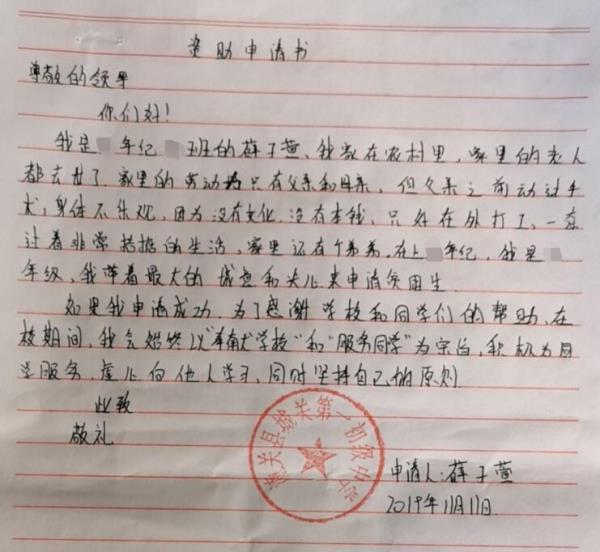 资助申请书
尊敬的领导
你们好!
我是 年纪 班的薛子萱、我家在农村里,家里的老人
都去世了家里的劳动力只有父亲和母亲,但父亲之前动过手
术,身体不乐观,因为没有文化,没有本钱,只好在外打工,一直
过着非常拮据的生活,家里还有个弟弟,在上 年纪,我是
年级,我带着最大的诚意和 来申请贫困生
如果我申请成功,为了感谢学校和同学们的帮助,在
校期间,我会始终以“奉献学校”和“服务同学”为宗旨,积极为同
学服务,虚心向他人学习,同时坚持自己的原则
此致
敬礼
潼关县城关第一初级中学
申请人:薛子萱
2019年11月11日